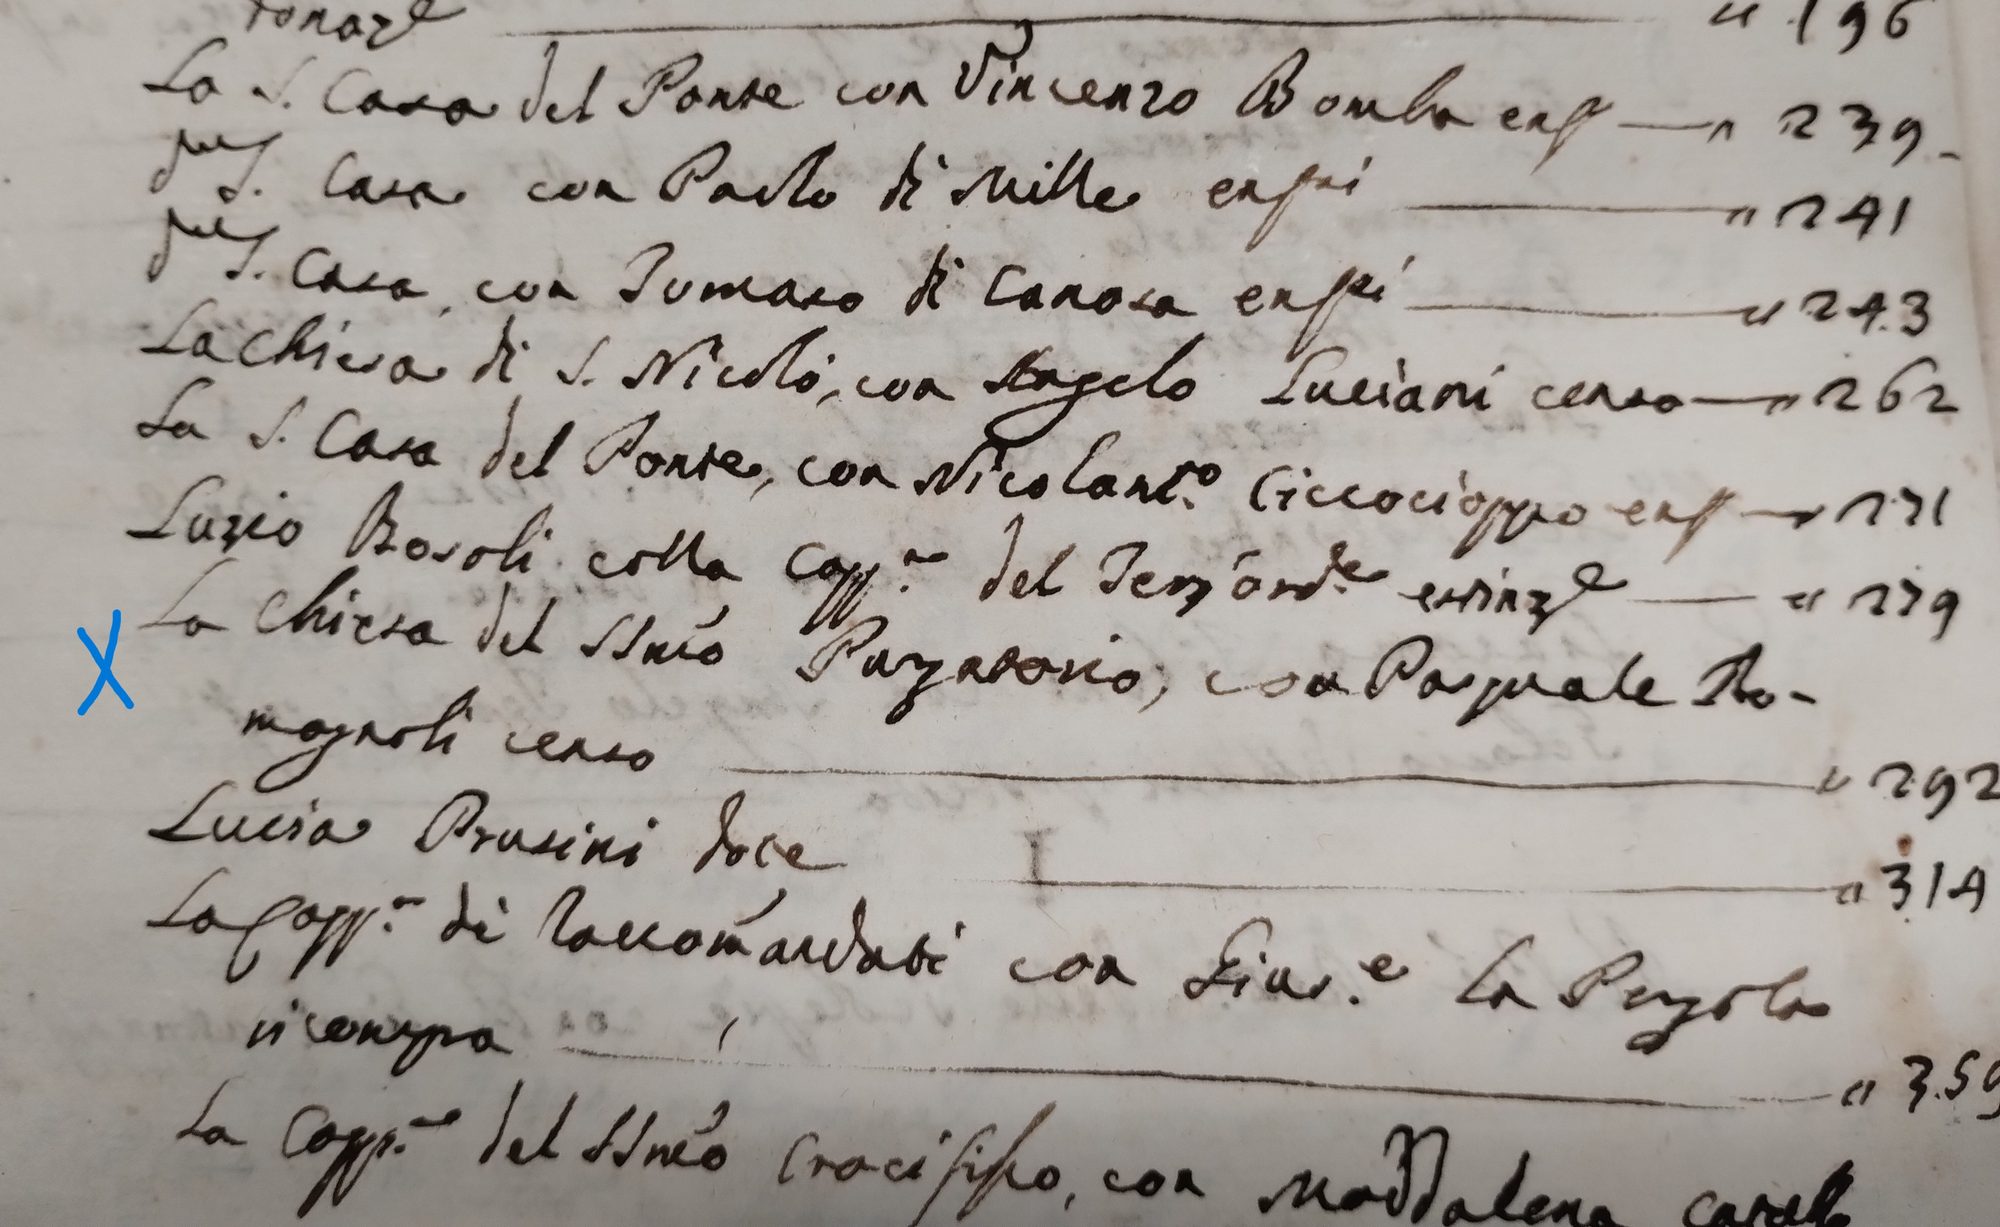 donaz.e " 196
La S. Casa del Ponte con Vincenzo Bomba enf " 239
S. Casa con Paolo di Mille enfsi " 241
S. Casa, con Tomaso di Canosa enfsi " 243
La Chiesa di S. Nicolò, con Angelo Luciani censo " 262
La S. Casa del Ponte, con Nicolant.o Ciccocioppo enf " 271
Luzio Bosoli colla Capp.a del Terz'ord.e estinz.e " 279
La Chiesa del SSmo Purgatorio, con Pasquale Ro-
magnoli censo " 292
Lucia Prusini dote " 314
La Capp.a di Raccomandati con Gius.e La Pezola
ricompra " 359
La Capp.a del SSmo Crocifisso, con Maddalena